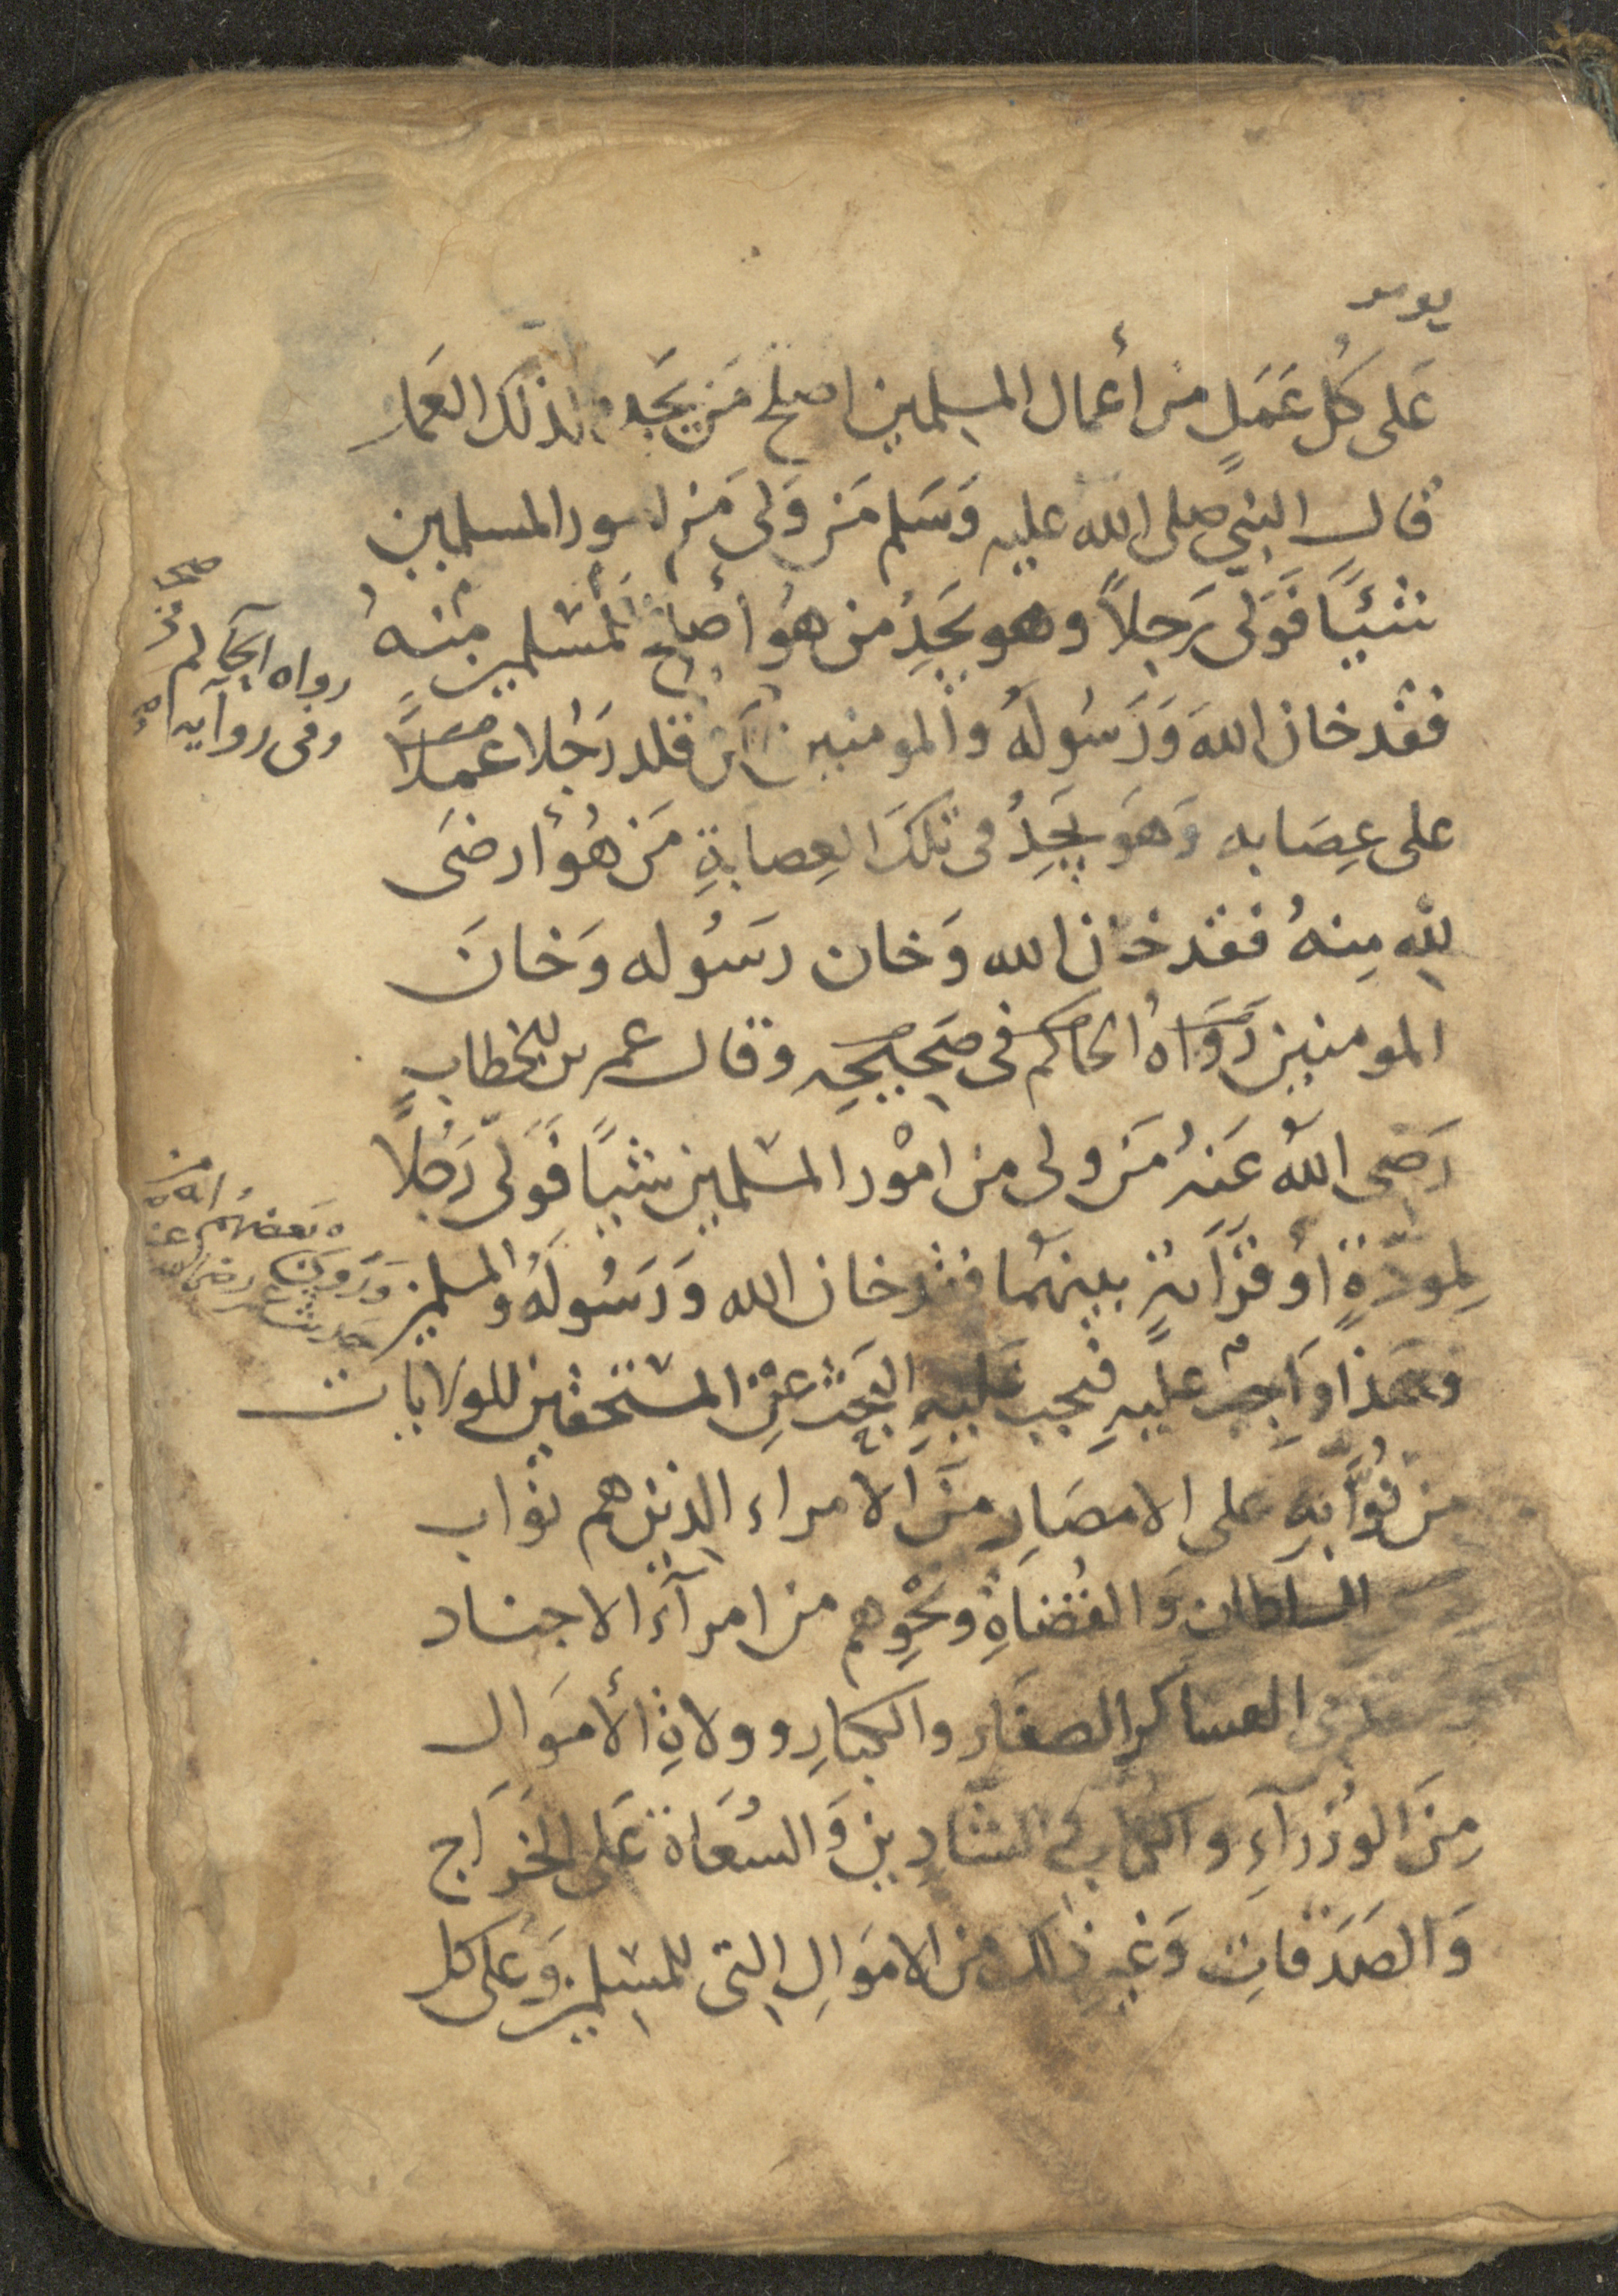 على كُل عَمَلٍ من أعمال المسلمين اصلح مَن يَجد لذلك العَمل
قال النبي صلى الله عليه وَسَلم مَن وَلى مَن امور المسلمين
شيئًا فَوَلّى رَجلاً وهو يَجِدُ من هُوَ أصلح للمسلمين منهُ
فقد خان اللهَ وَرَسُولَهُ والمومنين مَن قلد رَجُلا عملاً
على عِصَابه وَهوَ يَجِدُ فى تلكَ العِصابةِ مَن هُوَ أرضَى
لله مِنهُ فقد خان الله وَخان رسَوُله وَخانَ
المومنين رَوَاهُ الحاكم فى صَحيحِه وقال عمر بن الخطاب
رَضى اللهُ عَنهُ مَن ولى من امُور المسلمين شيًا فَوَلىّ رَجُلاً
لِموَدّةٍ أو قرَابةٍ بينهُما فقد خان الله وَرَسُولَهُ والمسلمين
وَهَذا وَاجِبٌ عليهِ فيجب عَليهِ البَحث عن المستحقين للولايات
من نُوَّابهِ على الامصَارِ منَ الامراء الذين هم نواب
السلطان وَالقُضاةِ ونحْوِهم من امرآءَ الاجناد
ومقدمى العساكر الصغار والكبارِ وولاةِ الأموَال
مِنَ الوُزرآءِ والكتاب والشادين وَالسُعَاة عَلى الخَرَاج
وَالصَدَقاتِ وَغيرِ ذلك من الاموَالِ التى للمسلمين وَعَلى كل
رواه الحاكم
وفى رواية
وَرَوى
بَعضهُم
رضى الله